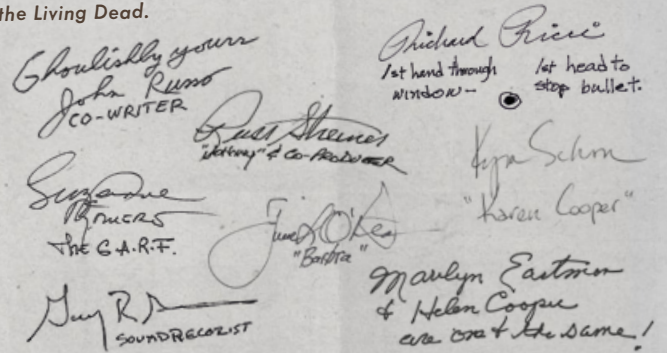 the Living Dead.
Ghoulishly yours
John Russo
CO-WRITER
Richard Ricci
1st hand through
window—
1st head to
stop bullet.
Russ Streiner
"Johnny" & CO-PRODUCER
Kyra Schon
"Karen Cooper"
Suzanne
ROMERO
The G.A.R.F.
Judith O'Dea
"Barbra"
Marilyn Eastman
& Helen Cooper
are one & the same!
Gary R.
SOUNDRECORDIST